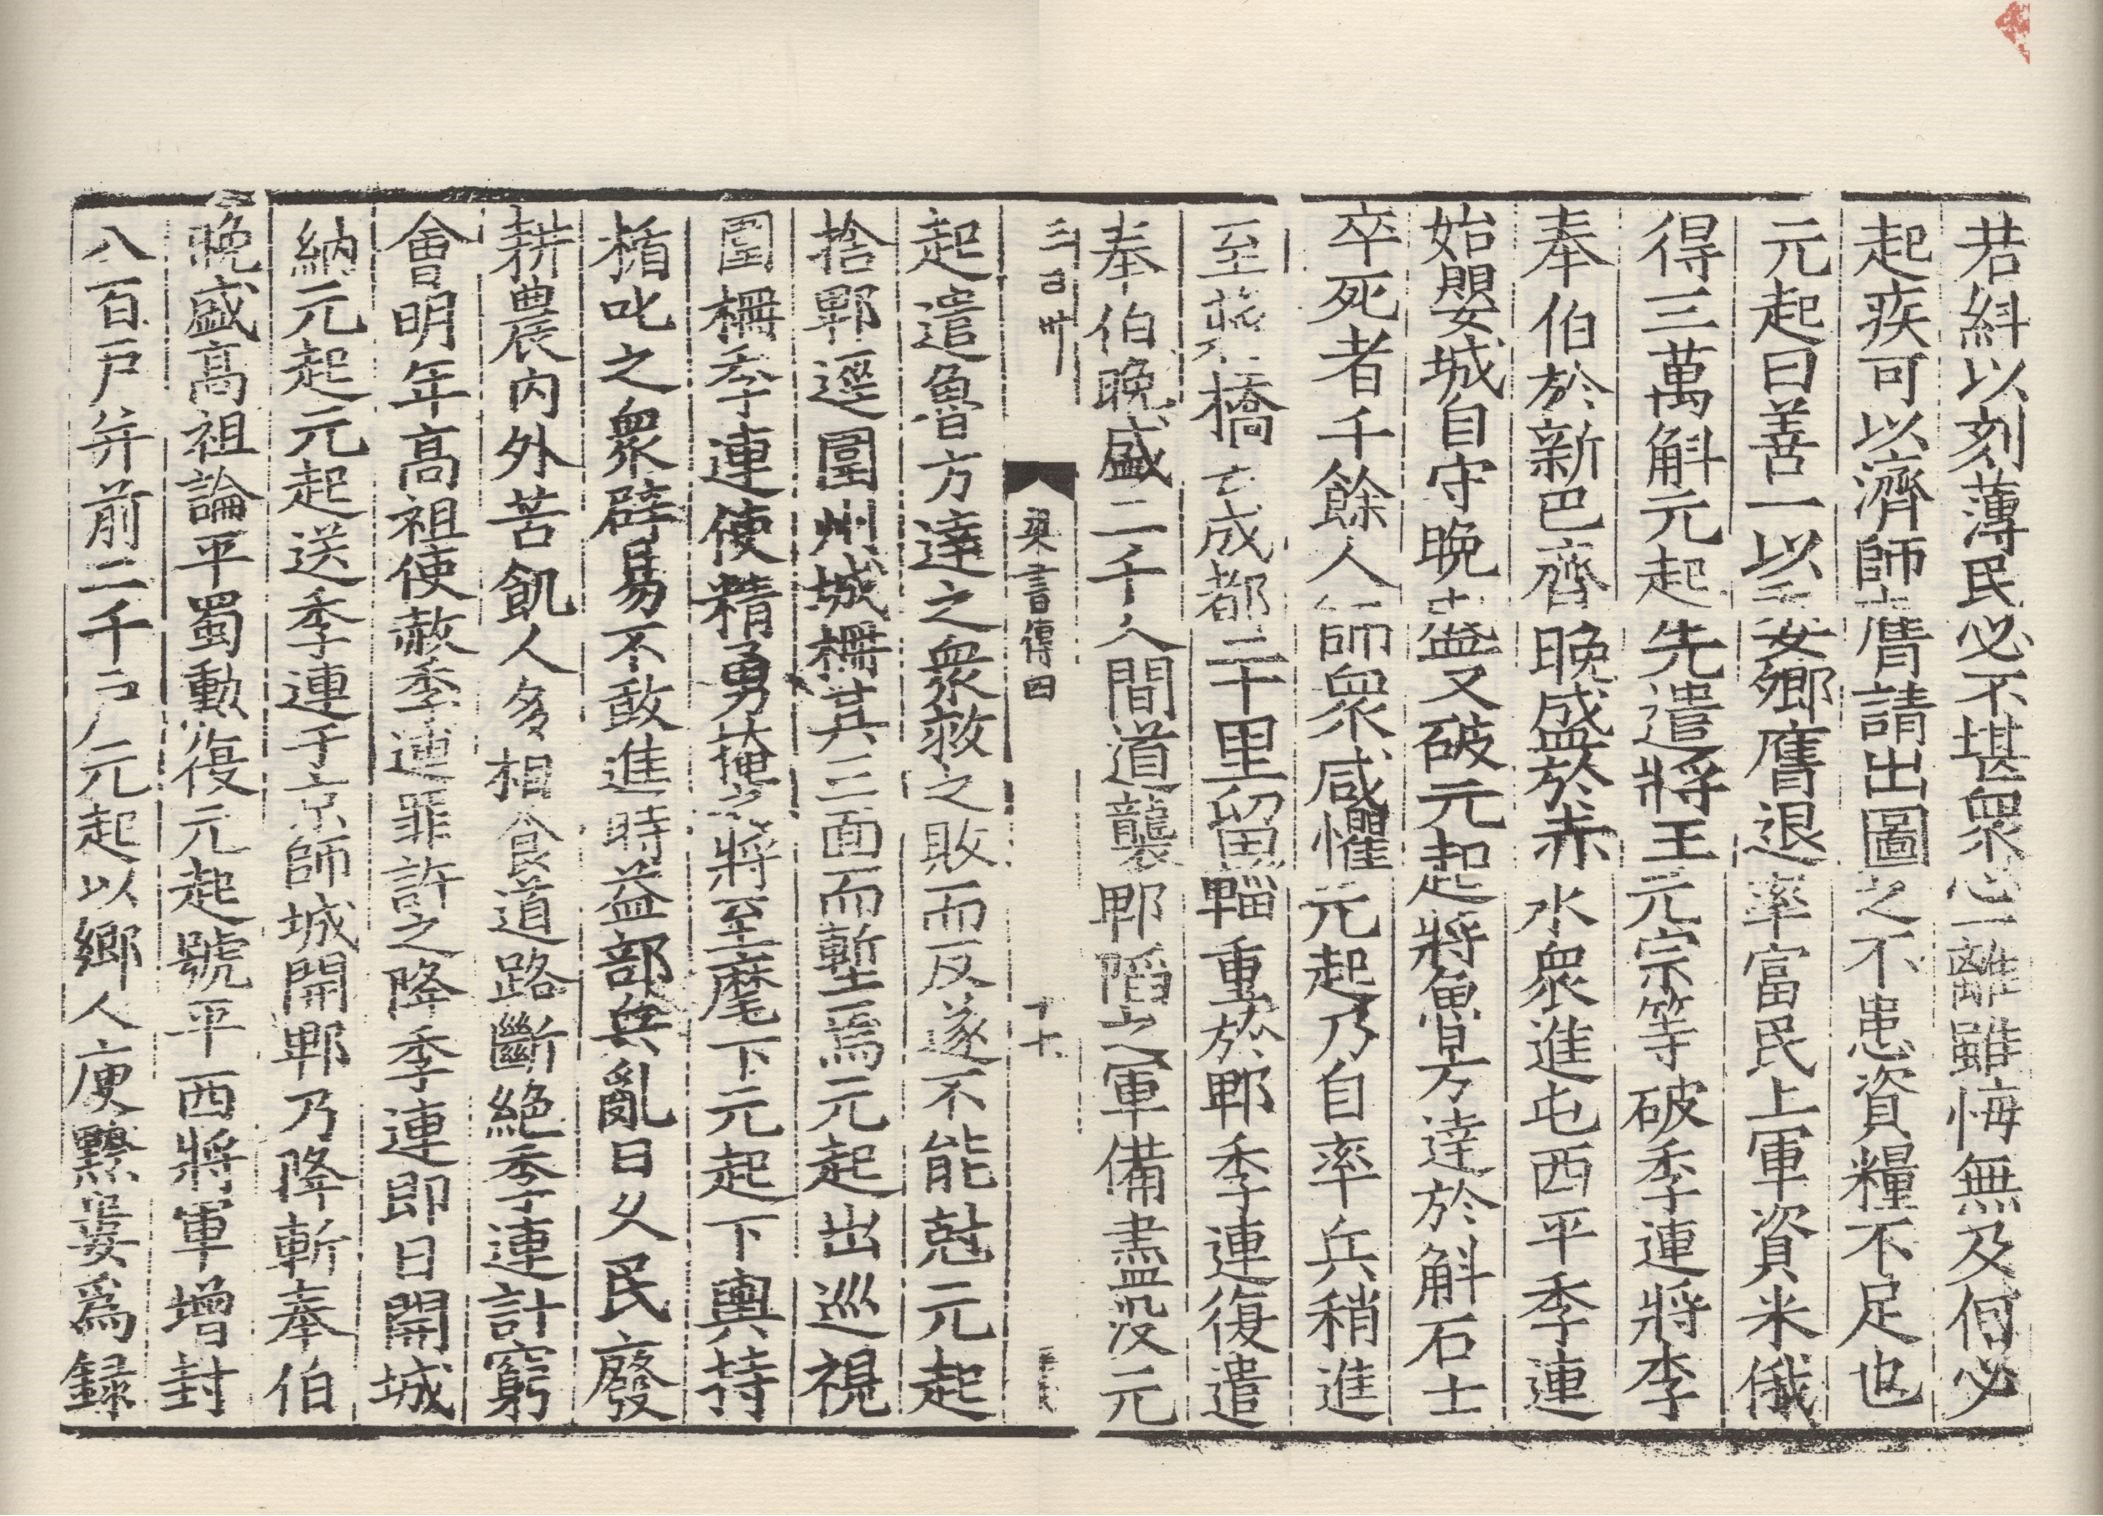 若糾以刻薄民必不堪衆心一離雖悔無及何必
起疾可以濟師膺請出圖之不患資糧不足也
元起曰善一以委卿膺退率富民上軍資米俄
得三萬斛元起先遣將王元宗等破季連將李
奉伯於新巴齊晚盛於赤水衆進屯西平季連
始嬰城自守晚盛又破元起將魯方達於斛石士
卒死者千餘人師衆咸懼元起乃自率兵稍進
至蔣橋去成都二十里留輜重於郫季連復遣
奉伯晚盛二千人間道襲郫陷之軍備盡没元
梁書傳四
起遣魯方達之衆救之敗而反遂不能剋元起
捨郫逕圍州城柵其三面而塹焉元起出巡視
圍柵季連使精勇掩之將至麾下元起下輿持
楯叱之衆辟易不敢進時益部兵亂日久民廢
耕農内外苦飢人多相食道路斷絶季連計窮
會明年高祖使赦季連罪許之降季連即日開城
納元起元起送季連于京師城開郫乃降斬奉伯
晚盛高祖論平蜀勳復元起號平西將軍增封
八百戸并前二千戸元起以鄉人庾黔婁爲録